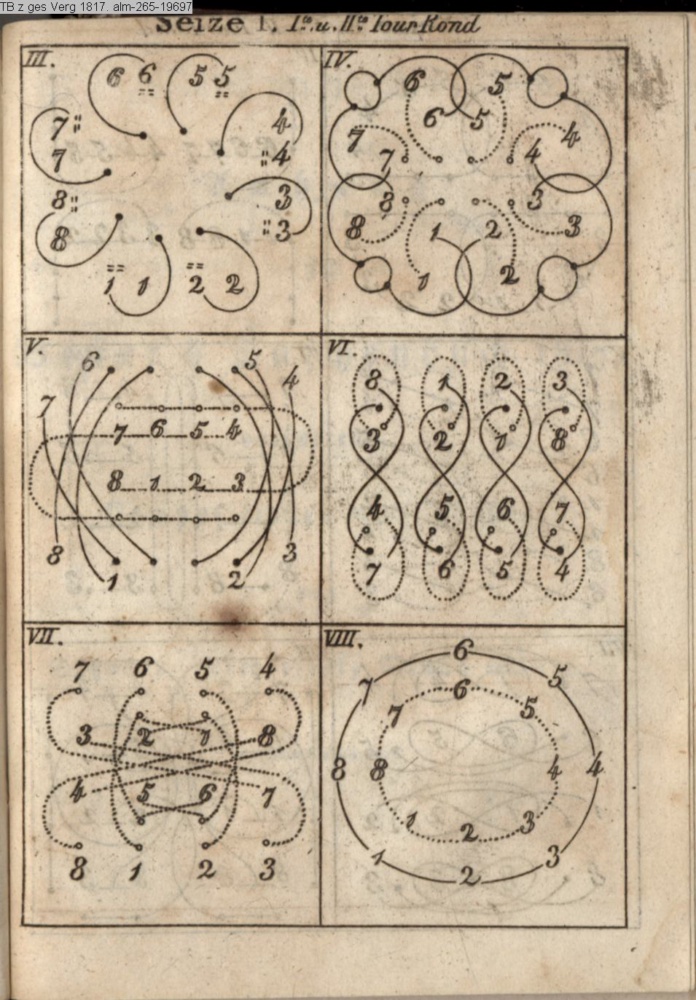 TB z ges Verg 1817. alm-265-19697
Seize I. Ite. u. IIte. Tour Rond
III.
6 6 5 5
7 4
7 4
8 3
8 3
1 1 2 2
IV.
6 5
6 5
7 4
7 4
8 3
8 1 2 3
1 2
V.
6 5
7 4
7 6 5 4
8 1 2 3
8 3
1 2
VI.
8 1 2 3
3 2 1 8
4 5 6 7
7 6 5 4
VII.
7 6 5 4
3 2 1 8
4 5 6 7
8 1 2 3
VIII.
6
7 6 5
7 5
8 8 4 4
1 2 3
1 2 3